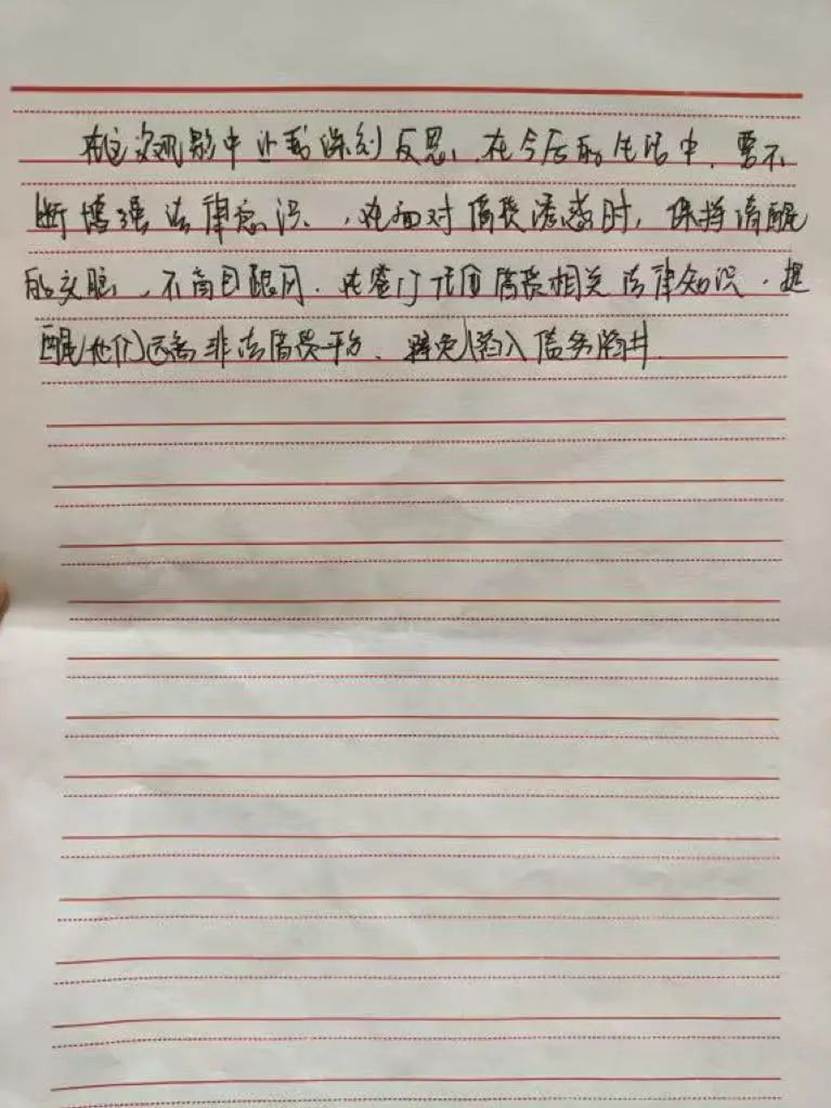 在这次观影中让我深刻反思，在今后的生活中，要不
断增强法律意识，在面对借贷诱惑时，保持清醒
的头脑，不盲目跟风，借贷相关法律知识，提
醒他们远离非法借贷平台，避免陷入债务陷井